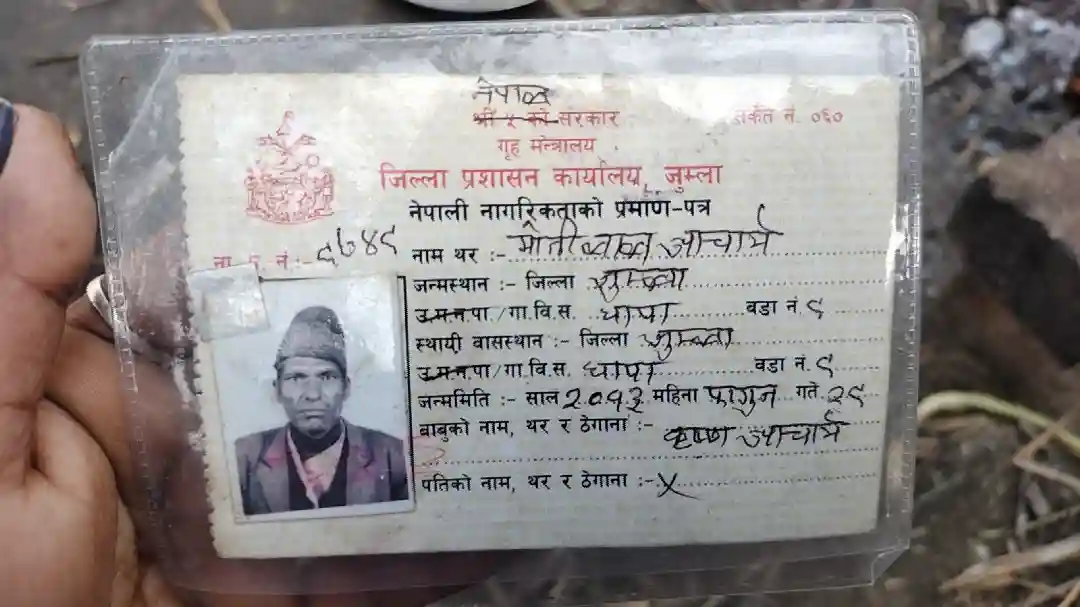 नेपाल
श्री ५ को सरकार
नं. ०६०
गृह मन्त्रालय
जिल्ला प्रशासन कार्यालय, जुम्ला
नेपाली नागरिकताको प्रमाण-पत्र
ना. प्र. नं :-
नाम थर :- मोतीलाल आचार्य
जन्मस्थान :- जिल्ला जुम्ला
उ.म.न.पा./गा.वि.स. धापा वडा नं. ९
स्थायी वासस्थान :- जिल्ला जुम्ला
उ.म.न.पा/गा.वि.स. धापा वडा नं. ९
जन्ममिति :- साल २०१३ महिना फागुन गते २९
बाबुको नाम, थर र ठेगाना :- कृष्ण आचार्य
पतिको नाम, थर र ठेगाना :- X